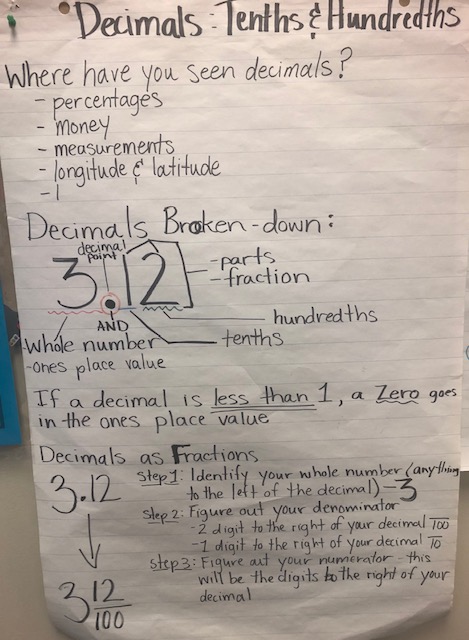 Decimals: Tenths & Hundredths
Where have you seen decimals?
- percentages
- money
- measurements
- longitude & latitude
- 1
Decimals Broken-down:
decimal
point
3.12
- parts
- fraction
AND
hundredths
Whole number
tenths
-ones place value
If a decimal is less than 1, a Zero goes
in the ones place value
Decimals as Fractions
3.12
Step 1: Identify your whole number (anything
to the left of the decimal) - 3
Step 2: Figure out your denominator
- 2 digit to the right of your decimal 100
- 1 digit to the right of your decimal 10
Step 3: Figure out your numerator - this
will be the digits to the right of your
decimal
3 12/100